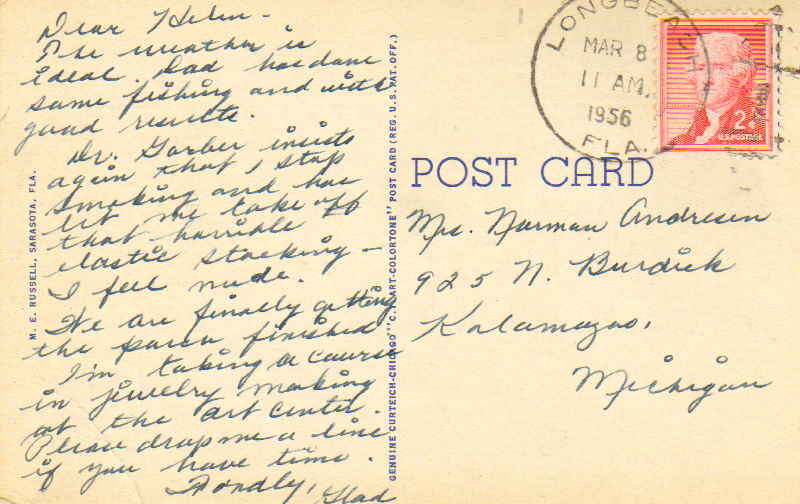 Dear Helen -
The weather is
ideal. Dad has done
some fishing and with
good results.
Dr. Garber insists
again that I stop
smoking and has
let me take off
that horrible
elastic stocking -
I feel nude.
We are finally getting
the porch finished
I'm taking a course
in jewelry making
at the art center.
Please drop me a line
if you have time.
Fondly,
Glad
M. E. RUSSELL, SARASOTA, FLA.
GENUINE CURTEICH-CHICAGO "C.T. ART-COLORTONE" POST CARD (REG. U.S. PAT. OFF.)
LONGBEACH
MAR 8
11 AM.
1956
FLA.
2¢
U.S. POSTAGE
POST CARD
Mrs. Norman Andresen
925 N. Burdick
Kalamazoo,
Michigan